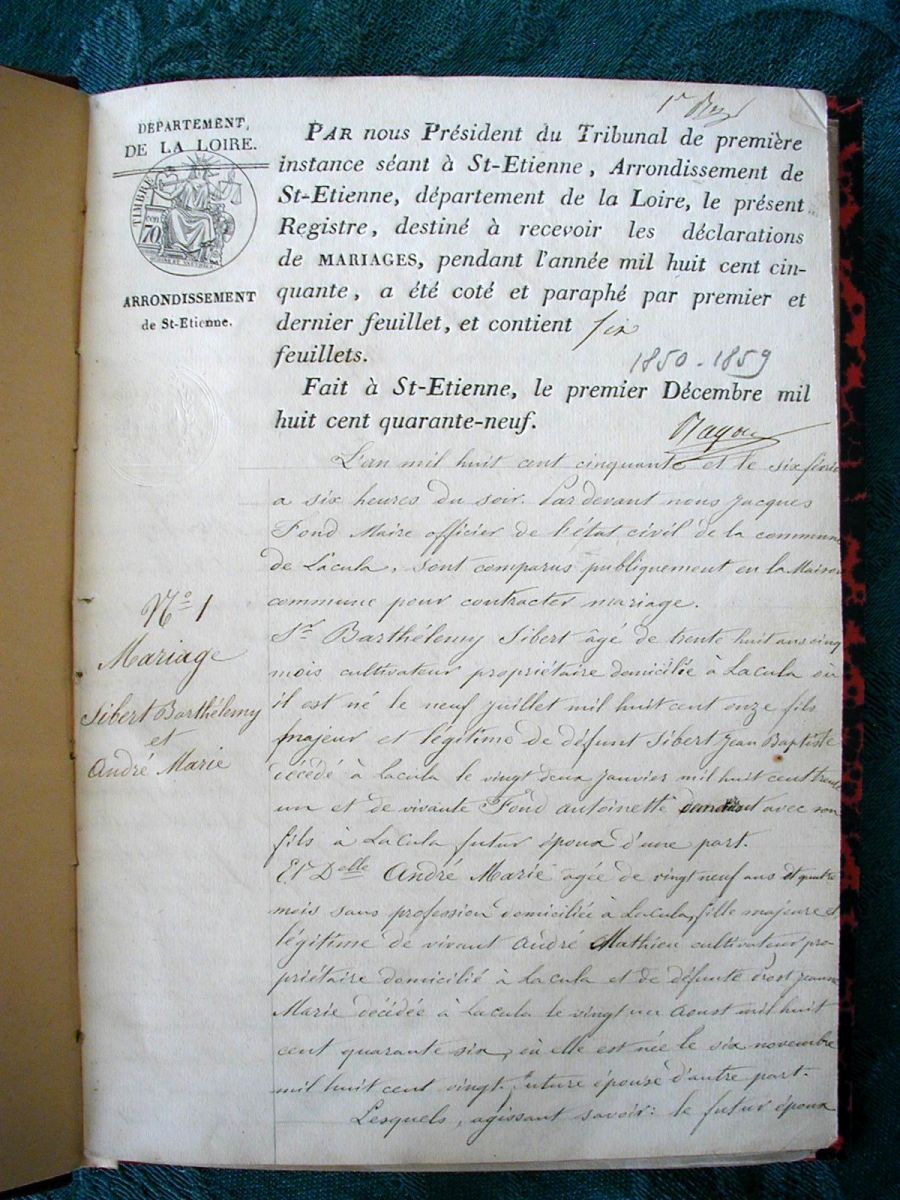 1er
DÉPARTEMENT,
DE LA LOIRE.
TIMBRE
cen
70
ARRONDISSEMENT
de St-Etienne.
PAR nous Président du Tribunal de première
instance séant à St-Etienne, Arrondissement de
St-Etienne, département de la Loire, le présent
Registre, destiné à recevoir les déclarations
de MARIAGES, pendant l'année mil huit cent cin-
quante, a été coté et paraphé par premier et
dernier feuillet, et contient six
feuillets.
1850-1859
Fait à St-Etienne, le premier Décembre mil
huit cent quarante-neuf.
L'an mil huit cent cinquante et le six févrie
a six heures du soir. Pardevant nous Jacques
Fond Maire officier de l'état civil de la commune
de Lacula, sont comparus publiquement en la Maison
commune pour contracter mariage.
No 1
Mariage
Sibert Barthélemy
et
André Marie
Sr Barthélemy Sibert âgé de trente huit ans cinq
mois cultivateur propriétaire domicilié à Lacula où
il est né le neuf juillet mil huit cent onze fils
majeur et légitime de défunt Sibert Jean Baptiste
décédé à Lacula le vingt deux janvier mil huit cent trente
un et de vivante Fond antoinette avec son
fils à Lacula futur époux d'une part.
Et Delle André Marie agée de vingt neuf ans et quatre
mois sans profession domiciliée à Lacula, fille majeure et
légitime de vivant André Mathieu cultivateur pro-
priétaire domicilié à Lacula et de défunte Jeanne
Marie décédée à Lacula le vingt un Aoust mil huit
cent quarante six, où elle est née le six novembre
mil huit cent vingt. future épouse d'autre part.
Lesquels, agissant savoir: le futur époux